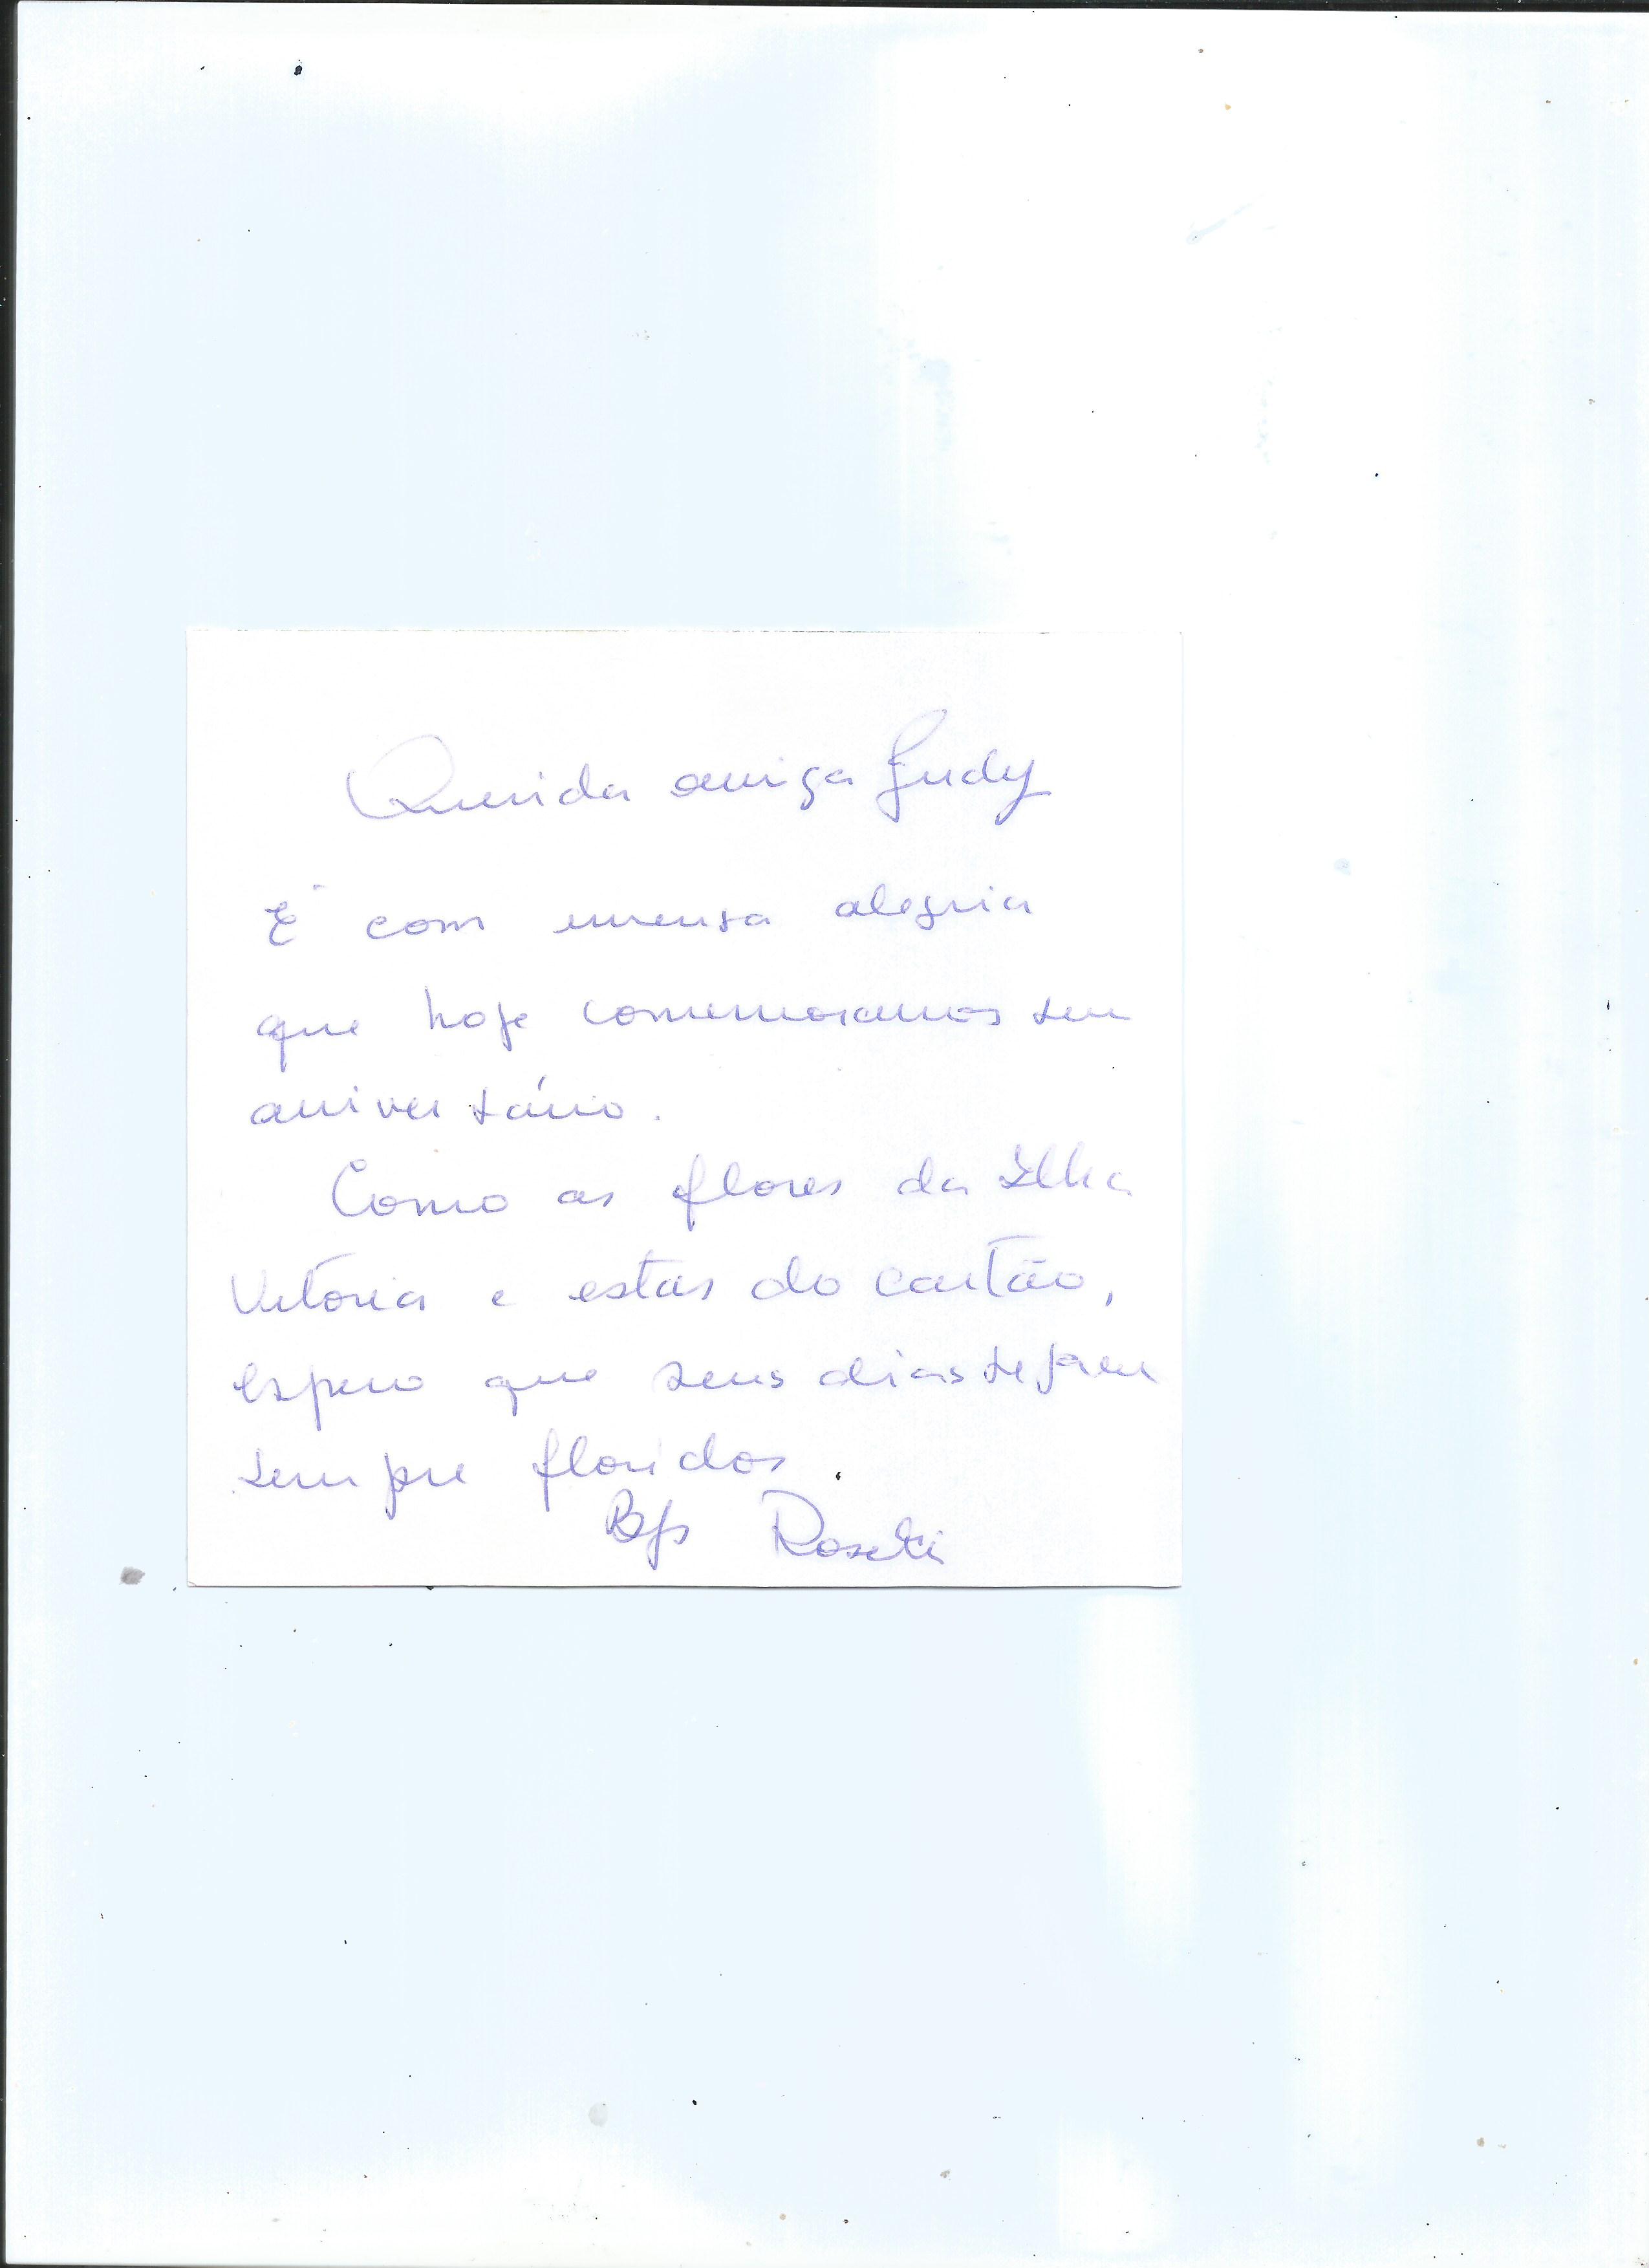 Querida amiga Judy
É com imensa alegria
que hoje comemoramos seu
aniversário.
Como as flores da Ilha
Vitória e estas do cartão,
espero que seus dias sejam
sempre floridos.
Bjs Roseli